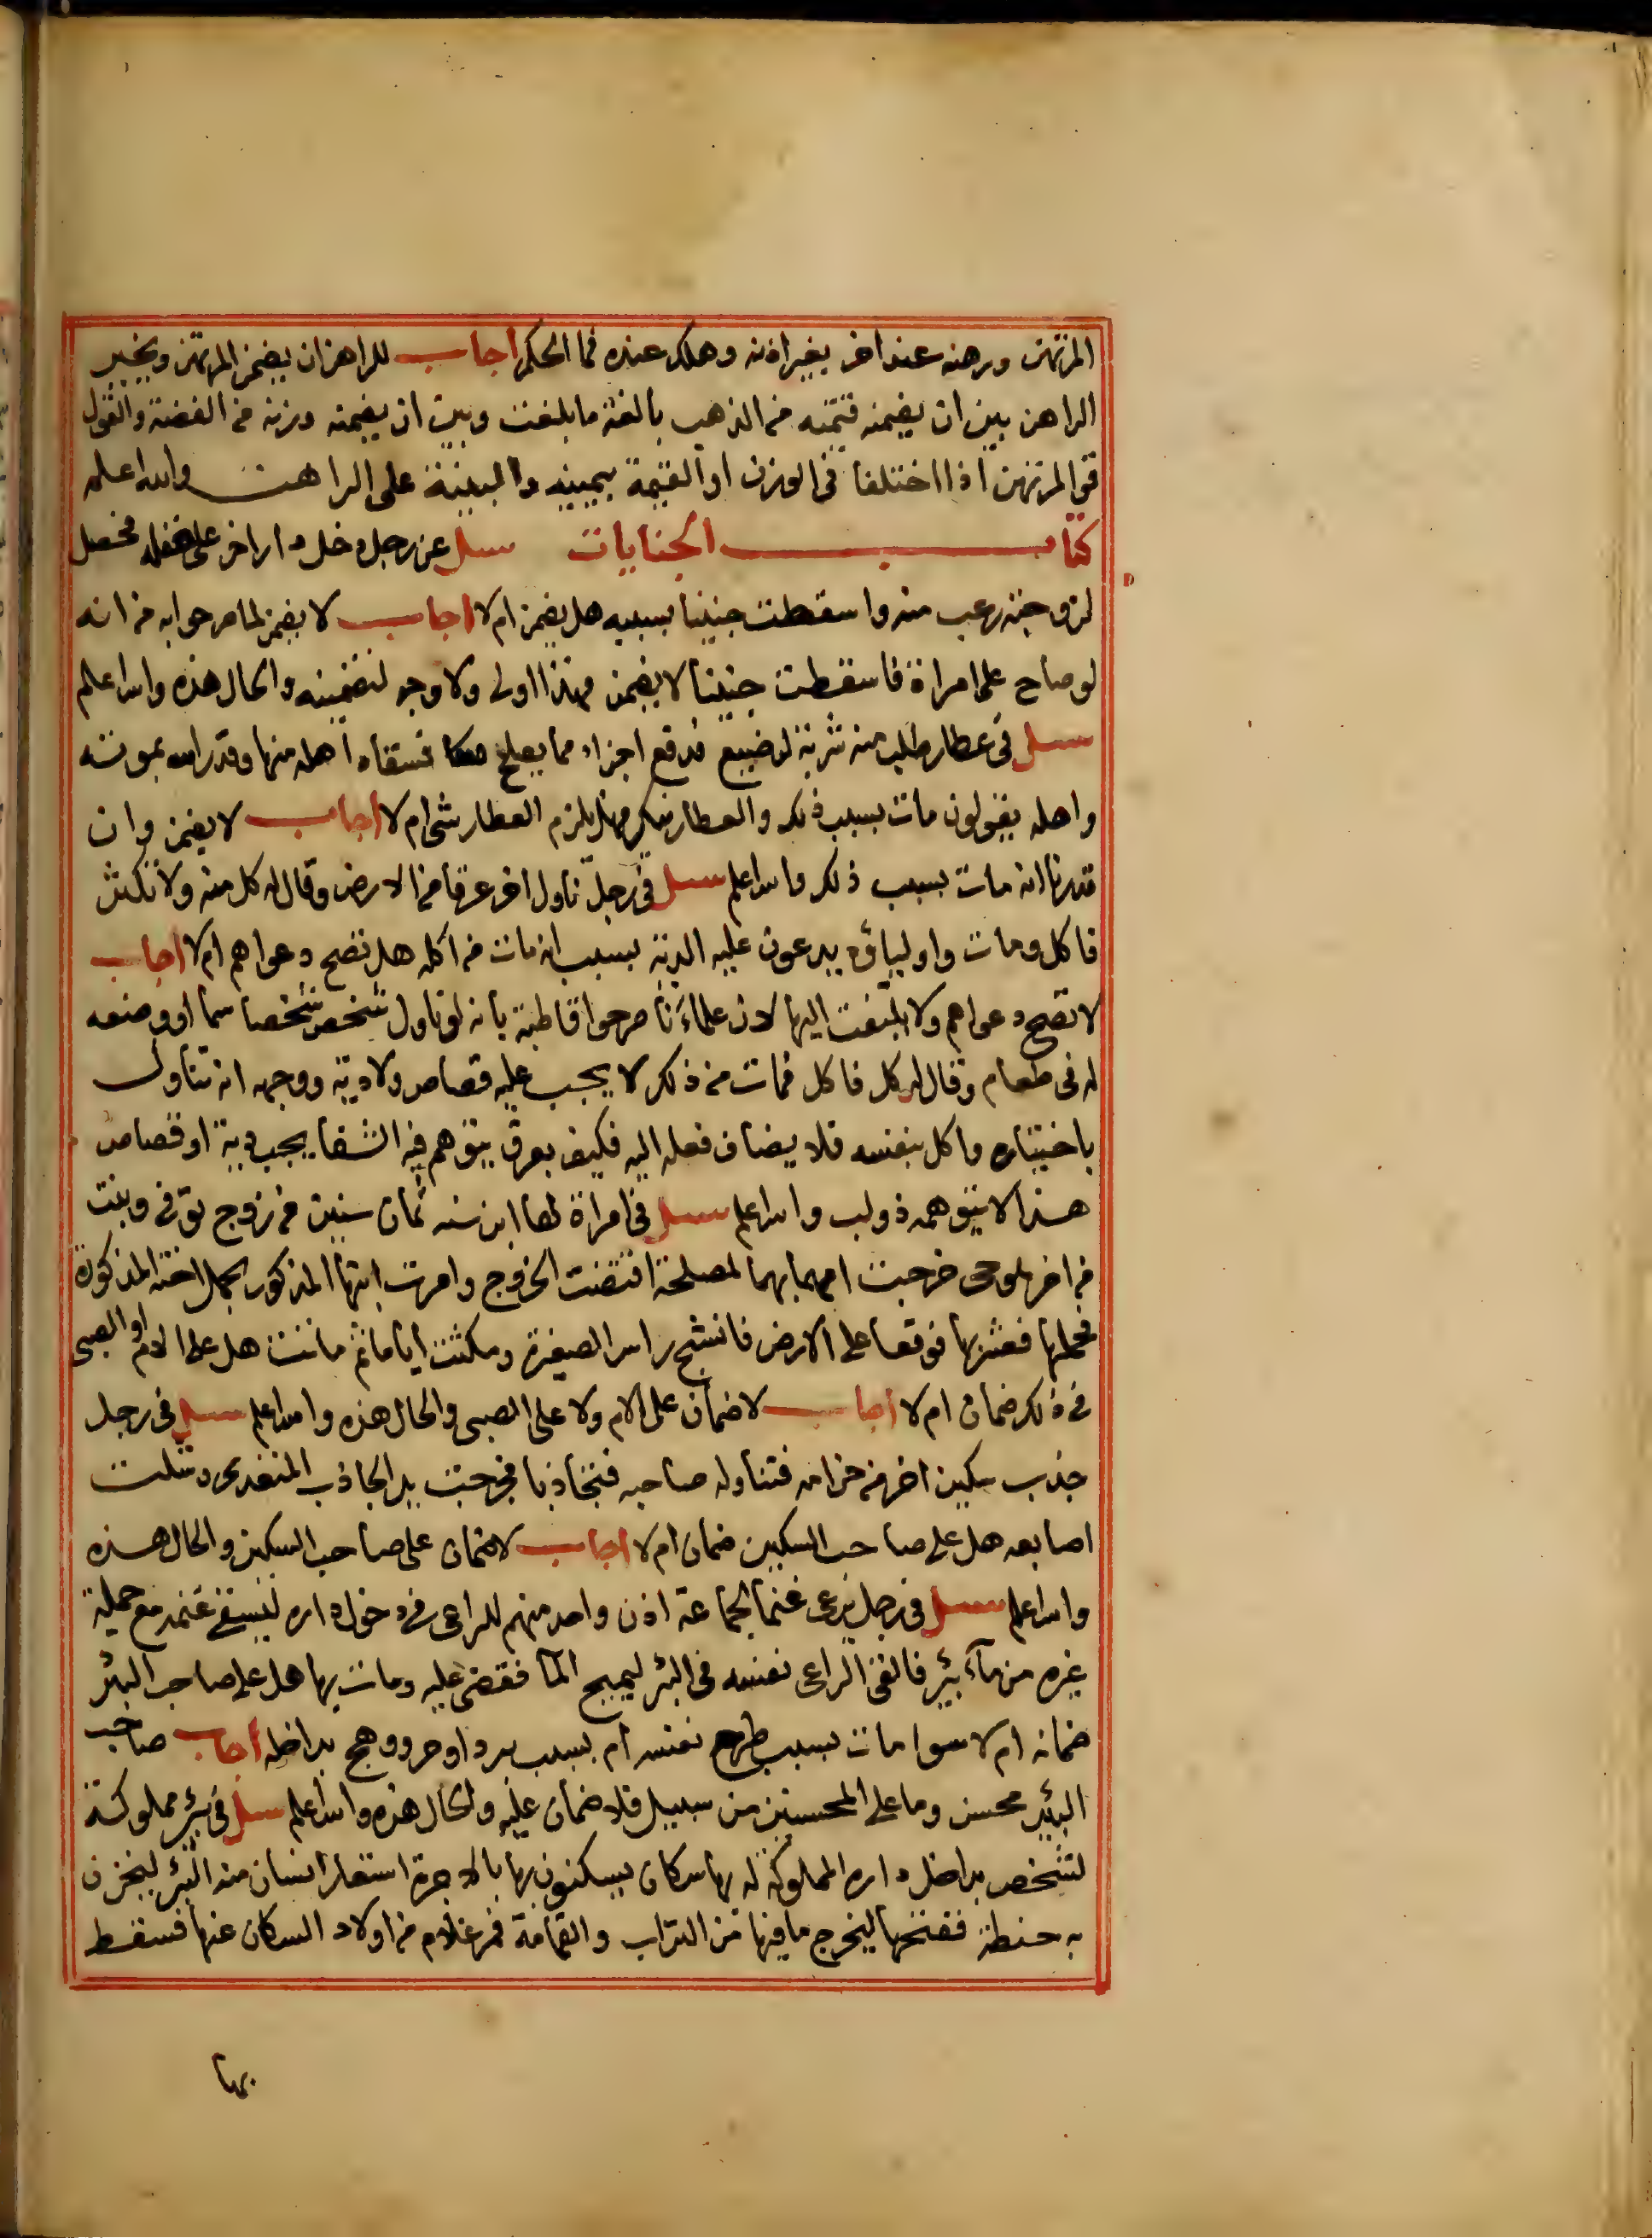 المرتهن ورهنه عند اخر بغير اذنه وهلك عنده فما الحكم اجاب للراهن ان يضمن المرتهن ويخير
الراهن بين ان يضمنه قيمته من الذهب بالغة ما بلغت وبين ان يضمنه وزنه من الفضة والقول
قول المرتهن اذا اختلفا في الوزن او القيمة بيمينه والبينة على الراهن والله اعلم
كتاب الجنايات سل عن رجل دخل دار اخر على غفله فحصل
لزوجته رعب منه واسقطت جنينا بسببه هل يضمن ام لا اجاب لا يضمن لما مر جوابه من انه
لو صاح على امراة فاسقطت جنينا لا يضمن فهذا اولى ولا وجه لتضمينه والحال هذه والله اعلم
سل في عطار طلب منه شربة لرضيع فدفع اجزاء مما يصلح فسقاه اهله منها وقدر الله بموته
واهله يقولون مات بسبب ذلك والعطار ينكر فهل يلزم العطار شي ام لا اجاب لا يضمن وان
قدرنا انه مات بسبب ذلك والله اعلم سل في رجل ناول اخر عرقا من الارض وقال له كل منه ولا تكثر
فاكل ومات واولياؤه يدعون عليه الدية بسبب انه مات من اكله هل تصح دعواهم ام لا اجاب
لا تصح دعواهم ولا يلتفت اليها لان علماءنا صرحوا قاطبة بانه لو ناول شخص شخصا سما او وضعه
له في طعام وقال له كل فاكل فمات من ذلك لا يجب عليه قصاص ولا دية ووجهه انه تناول
باختياره واكل بنفسه فلا يضاف فعله اليه فكيف بعرق يتوهم فيه الشفا يجب دية او قصاص
هذا لا يتوهمه ذو لب والله اعلم سل في امراة لها ابن سنه ثمان سنين من زوج توفي وبنت
من اخر خرجت امهما بهما لمصلحة اقتضت الخروج وامرت ابنها المذكور بحمل اخته المذكورة
فحملها فعثر بها فوقعا على الارض فانشج راس الصغيرة ومكثت اياما ثم ماتت هل على الام او الصبي
في ذلك ضمان ام لا اجاب لا ضمان على الام ولا على الصبي والحال هذه والله اعلم سل في رجل
جذب سكين اخر من حزامه فتناوله صاحبه فتجاذبا فجرحت يد الجاذب المتعدي وشلت
اصابعه هل على صاحب السكين ضمان ام لا اجاب لا ضمان على صاحب السكين والحال هذه
والله اعلم سل في رجل يرعى غنما لجماعة اذن واحد منهم للراعي في دخول داره ليسقي غنمه مع جملة
غيره من ماء بئر فالقى الراعي نفسه في البئر ليميح الما فقضى عليه ومات بها هل على صاحب البئر
ضمانه ام لا سوا مات بسبب طرح نفسه ام بسبب برد او حر ووهج بداخله اجاب صاحب
البئر محسن وما على المحسنين من سبيل فلا ضمان عليه والحال هذه والله اعلم سل في بئر مملوكة
لشخص بداخل داره المملوكة له بها سكان يسكنون بها بالاجرة استعار انسان منه البئر ليخزن
به حنطة ففتحها ليخرج ما فيها من التراب والقمامة فمر غلام من اولاد السكان عنها فسقط
بها